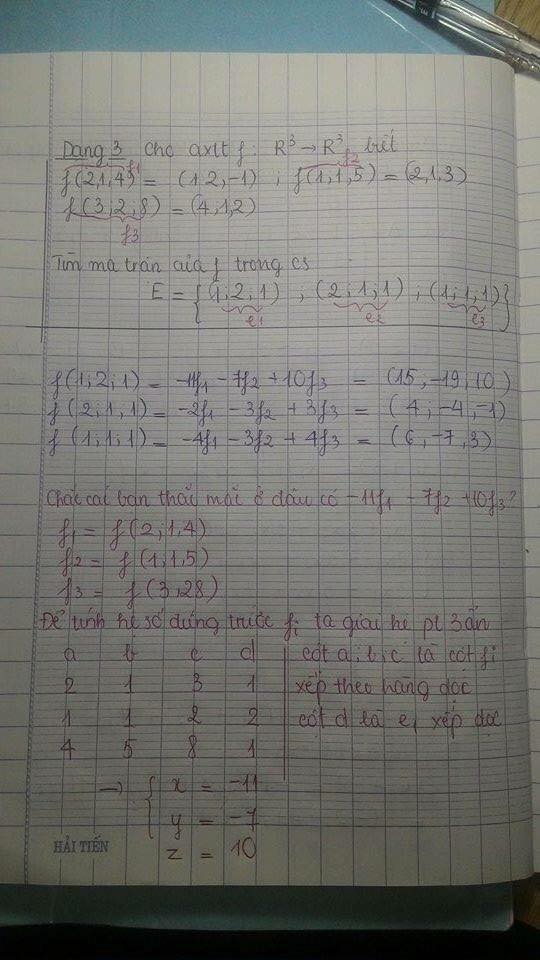 Dạng 3 Cho axtt f: R³ → R³ biết
f(2,1,4) = (1 2, -1) ; f(1,1,5) = (2,1,3)
f1 f2
f(3,2,8) = (4,1,2)
f3
Tìm ma trận của f trong cs
E = { (1,2,1) , (2,1,1) , (1,1,1) }
e1 e2 e3
f(1;2;1) = -11f1 - 7f2 + 10f3 = (15,-19,10)
f(2;1,1) = -2f1 - 3f2 + 3f3 = (4,-4,-1)
f(1;1;1) = -4f1 - 3f2 + 4f3 = (6,-7,3)
Chắc các bạn thắc mắc ở đâu có -11f1 - 7f2 + 10f3?
f1 = f(2;1,4)
f2 = f(1;1,5)
f3 = f(3,28)
Để tính hệ số đứng trước fi ta giải hệ pt 3 ẩn
a b c d cột a, b, c là cột fi
2 1 3 1 xếp theo hàng dọc
1 1 2 2 cột d là e1 xếp dọc
4 5 8 1
→ { x = -11
y = -7
z = 10
HẢI TIẾN